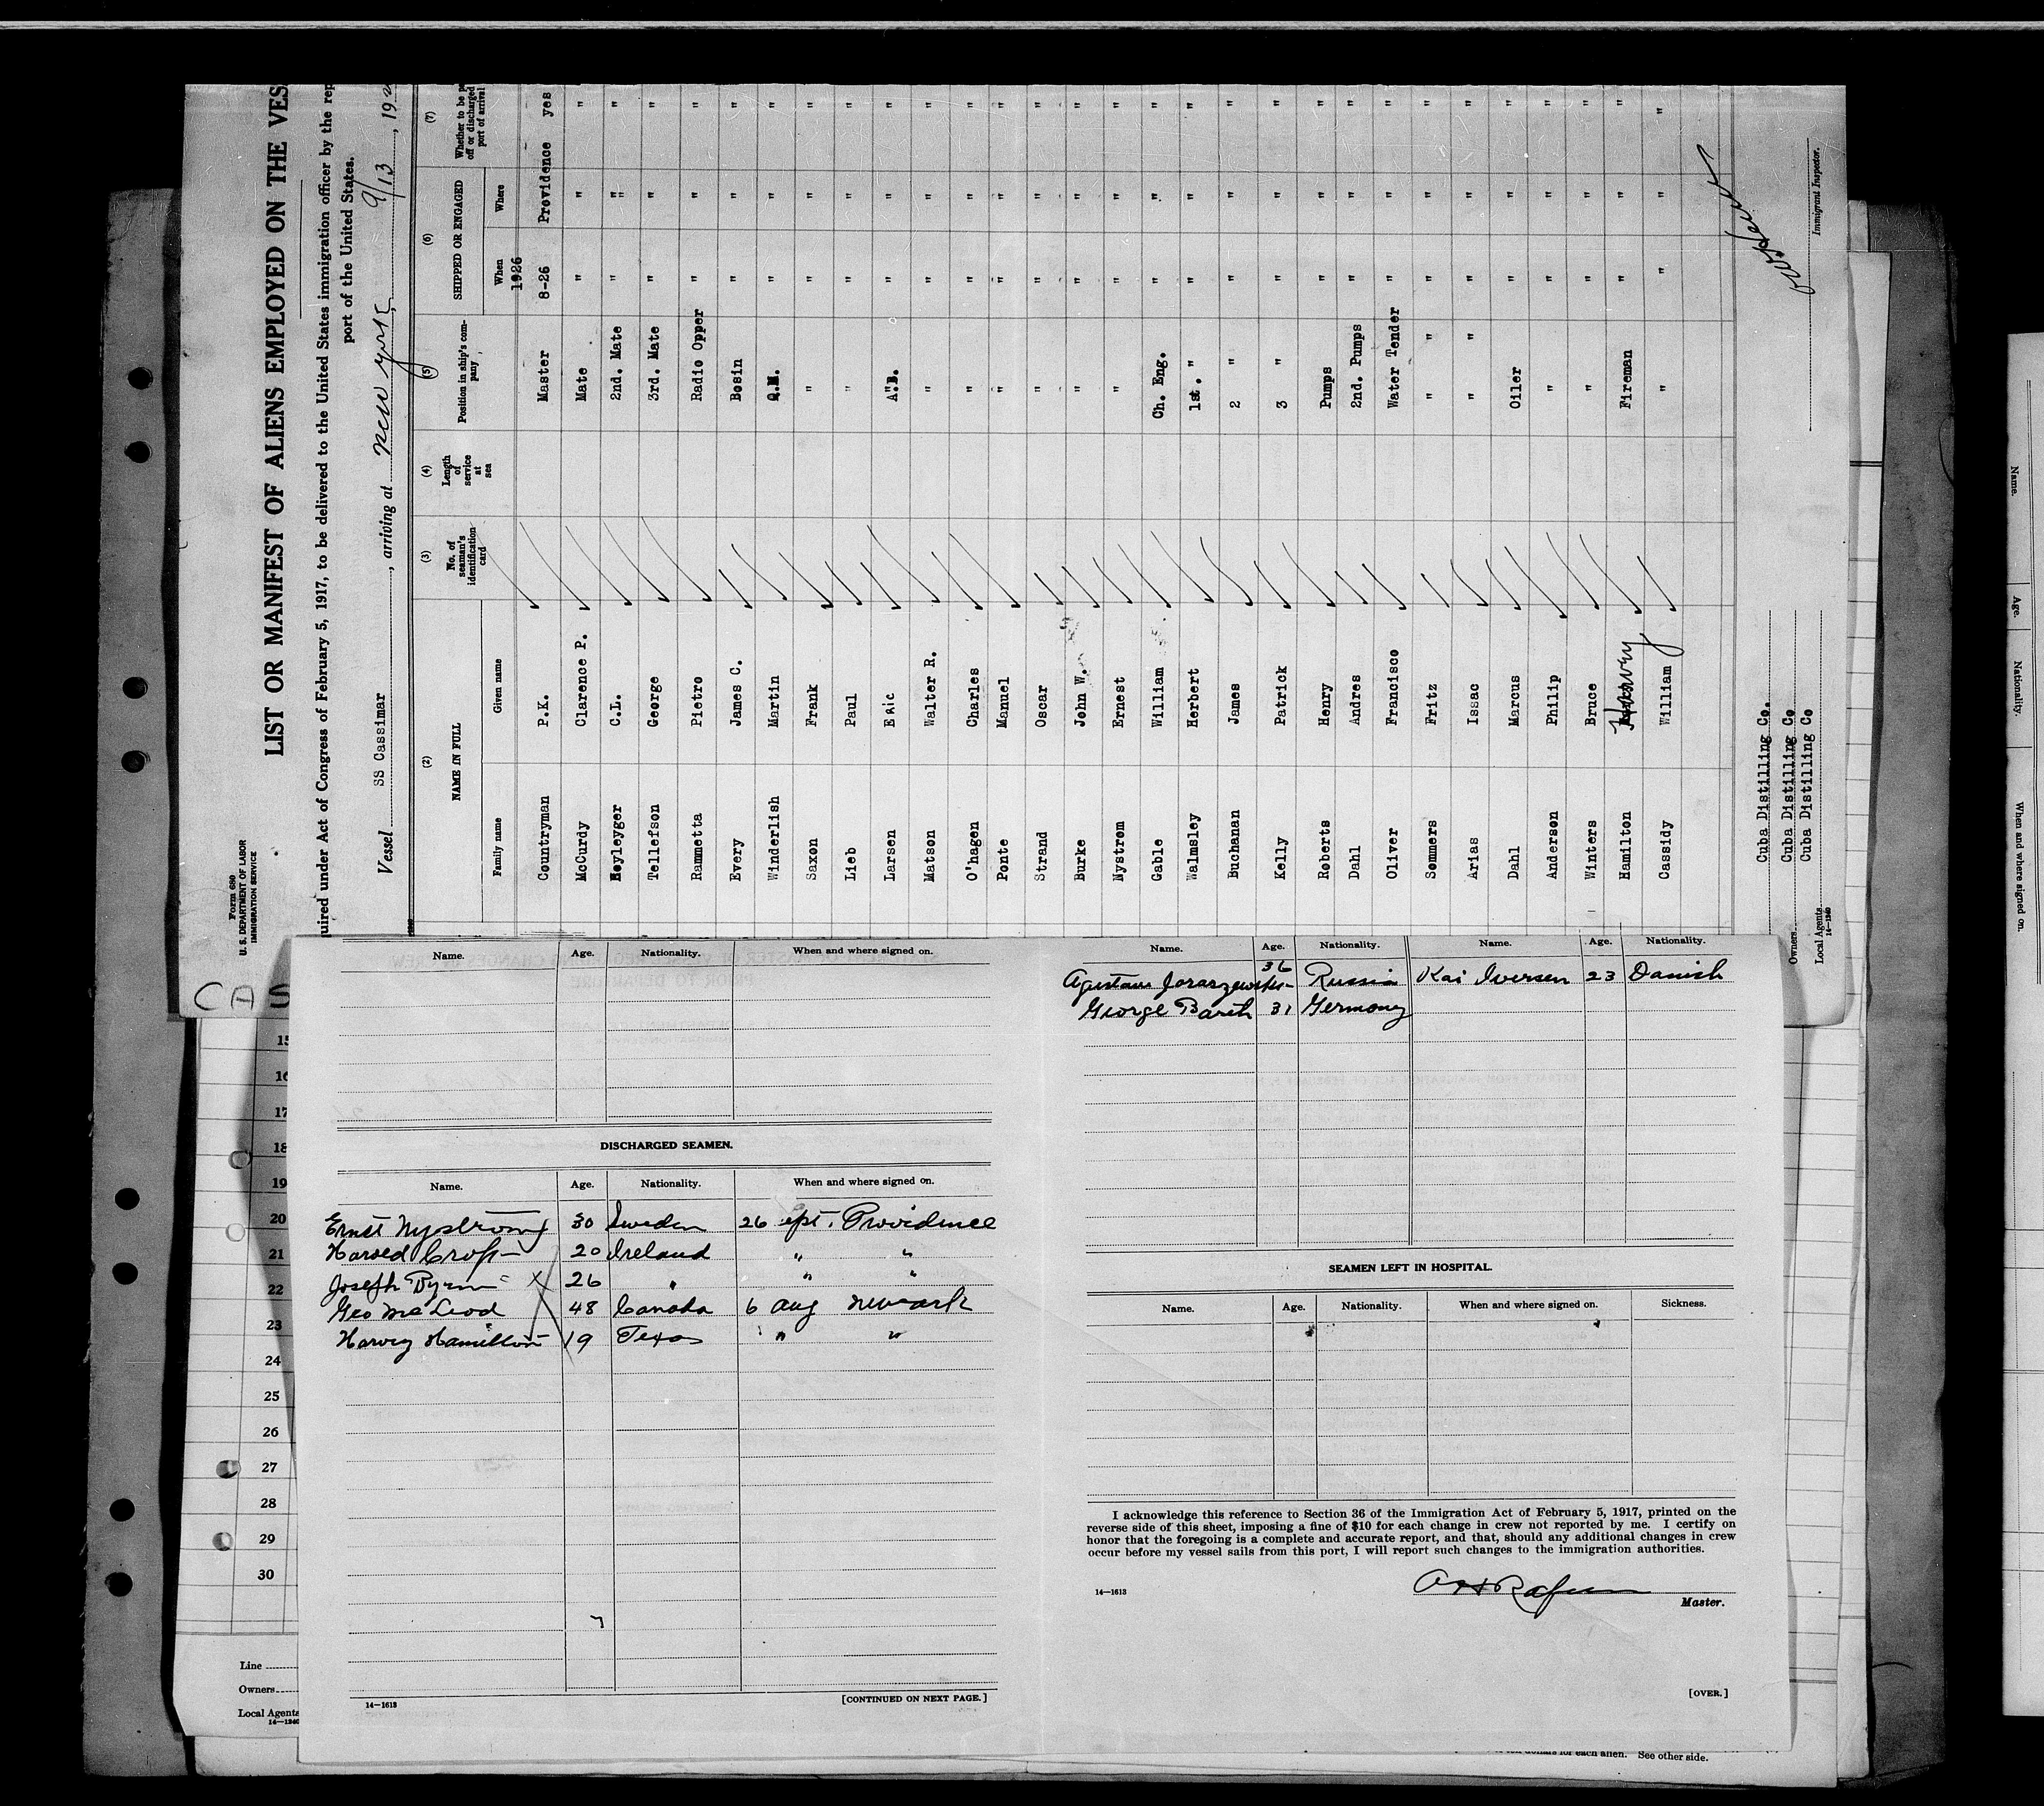 Form 680
U. S. DEPARTMENT OF LABOR
IMMIGRATION SERVICE
LIST OR MANIFEST OF ALIENS EMPLOYED ON THE VES
quired under Act of Congress of February 5, 1917, to be delivered to the United States immigration officer by the rep
port of the United States.
Vessel SS Cassimar, arriving at New York, 9/13, 192
(2) (3) (4) (5) (6) (7)
NAME IN FULL No. of seaman's identification card Length of service at sea Position in ship's company SHIPPED OR ENGAGED Whether to be p off or discharged port of arrival
Family name Given name When Where
1926
Countryman P.K. Master 8-26 Providence yes
McCurdy Clarence P. Mate " " "
Heyleyger C.L. 2nd. Mate " " "
Tellefson George 3rd. Mate " " "
Rammetta Pietro Radio Opper " " "
Every James C. Bosin " " "
Winderlish Martin Q.M. " " "
Saxon Frank " " " "
Lieb Paul " " " "
Larsen Eric A.B. " " "
Matson Walter R. " " " "
O'hagen Charles " " " "
Ponte Manuel " " " "
Strand Oscar " " " "
Burke John W. " " " "
Nystrom Ernest " " " "
Gable William Ch. Eng. " " "
Walmsley Herbert 1st. " " " "
Buchanan James 2 " " " "
Kelly Patrick 3 " " " "
Roberts Henry Pumps " " "
Dahl Andres 2nd. Pumps " " "
Oliver Francisco Water Tender " " "
Sommers Fritz " " " " "
Arias Issac " " " " "
Dahl Marcus Oiler " " "
Anderson Philip " " " "
Winters Bruce " " " "
Hamilton Harvey Fireman " " "
Cassidy William " " " "
Immigrant Inspector.
Cuba Distilling Co.
Owners Cuba Distilling Co
Local Agents Cuba Distilling Co
14-1240
CAS
Name. Age. Nationality. When and where signed on.
DISCHARGED SEAMEN.
Name. Age. Nationality. When and where signed on.
Ernst Nystrom 30 Sweden 26 ept. Providence
Harold Croft 20 Ireland " "
Joseph Byrne X 26 " " "
Geo McLeod 48 Canada 6 Aug Newark
Harvey Hamilton 19 Texas " "
14—1613
[CONTINUED ON NEXT PAGE.]
Name. Age. Nationality. Name. Age. Nationality.
36 Russia Kai Iversen 23 Danish
George Barth 31 Germany
SEAMEN LEFT IN HOSPITAL.
Name. Age. Nationality. When and where signed on. Sickness.
I acknowledge this reference to Section 36 of the Immigration Act of February 5, 1917, printed on the
reverse side of this sheet, imposing a fine of $10 for each change in crew not reported by me. I certify on
honor that the foregoing is a complete and accurate report, and that, should any additional changes in crew
occur before my vessel sails from this port, I will report such changes to the immigration authorities.
14—1613
Master.
[OVER.]
15
16
17
18
19
20
21
22
23
24
25
26
27
28
29
30
Line
Owners
Local Agents
14—1240
ten dollars for each alien. See other side.
Name. Age. Nationality. When and where signed on.